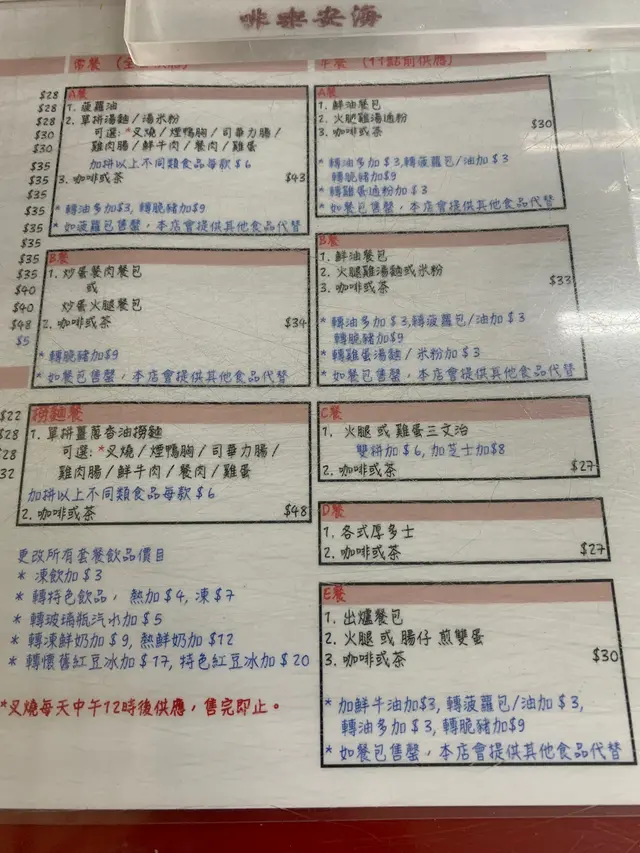 常餐 (全
$28
$28
$28
$30
$30
$35
$35
$35
$35
$35
$35
$35
$40
$40
$48
$5
$22
$28
$28
32
A餐
1. 菠蘿油
2. 單拼湯麵 / 湯米粉
可選: *叉燒 / 煙鴨胸 / 司華力腸 /
雞肉腸 / 鮮牛肉 / 餐肉 / 雞蛋
加拼以上不同類食品每款 $6
3. 咖啡或茶 $43
* 轉油多加$3, 轉脆豬加$9
* 如菠蘿包售罄，本店會提供其他食品代替
B餐
1. 炒蛋餐肉餐包
或
炒蛋火腿餐包
2. 咖啡或茶 $34
* 轉脆豬加$9
* 如餐包售罄，本店會提供其他食品代替
撈麵餐
1. 單拼薑蔥香油撈麵
可選: *叉燒 / 煙鴨胸 / 司華力腸 /
雞肉腸 / 鮮牛肉 / 餐肉 / 雞蛋
加拼以上不同類食品每款 $6
2. 咖啡或茶 $48
更改所有套餐飲品價目
* 凍飲加 $3
* 轉特色飲品，熱加 $4, 凍 $7
* 轉玻璃瓶汽水加 $5
* 轉凍鮮奶加 $9, 熱鮮奶加 $12
* 轉懷舊紅豆冰加 $17, 特色紅豆冰加 $20
*叉燒每天中午12時後供應，售完即止。
餐 (11點前供應)
A餐
1. 鮮油餐包
2. 火腿雞湯通粉
3. 咖啡或茶 $30
* 轉油多加 $3,轉菠蘿包/油加 $3
轉脆豬加$9
* 轉雞蛋通粉加 $3
* 如餐包售罄，本店會提供其他食品代替
B餐
1. 鮮油餐包
2. 火腿雞湯麵或米粉
3. 咖啡或茶 $33
* 轉油多加 $3,轉菠蘿包/油加 $3
轉脆豬加$9
* 轉雞蛋湯麵 / 米粉加 $3
* 如餐包售罄，本店會提供其他食品代替
C餐
1. 火腿 或 雞蛋三文治
雙拼加 $6, 加芝士加$8
2. 咖啡或茶 $27
D餐
1. 各式厚多士
2. 咖啡或茶 $27
E餐
1. 出爐餐包
2. 火腿 或 腸仔 煎雙蛋
3. 咖啡或茶 $30
* 加鮮牛油加$3, 轉菠蘿包/油加 $3,
轉油多加 $3, 轉脆豬加$9
* 如餐包售罄，本店會提供其他食品代替